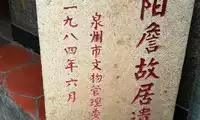 阳詹故居遗
泉州市文物管理委
一九八四年六月